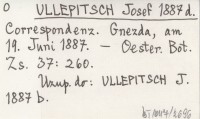 O ULLEPITSCH Josef 1887 d.
Correspondenz. Gnezda, am
19. Juni 1887. — Oester. Bot.
Zs. 37: 260.
Uzup. do: ULLEPITSCH J.
1887 b.